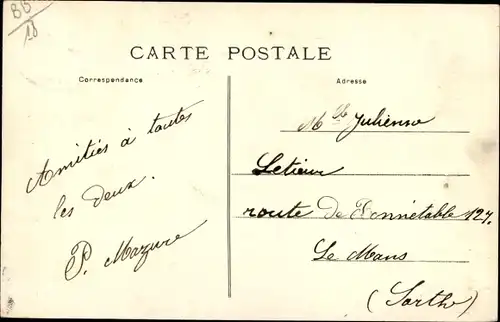 BB
18
CARTE POSTALE
Correspondance
Adresse
Amitiés à toutes
les deux.
P. Mazure
Mlle Julienne
Letieur
route De Bonnétable 127.
Le Mans
(Sarthe)